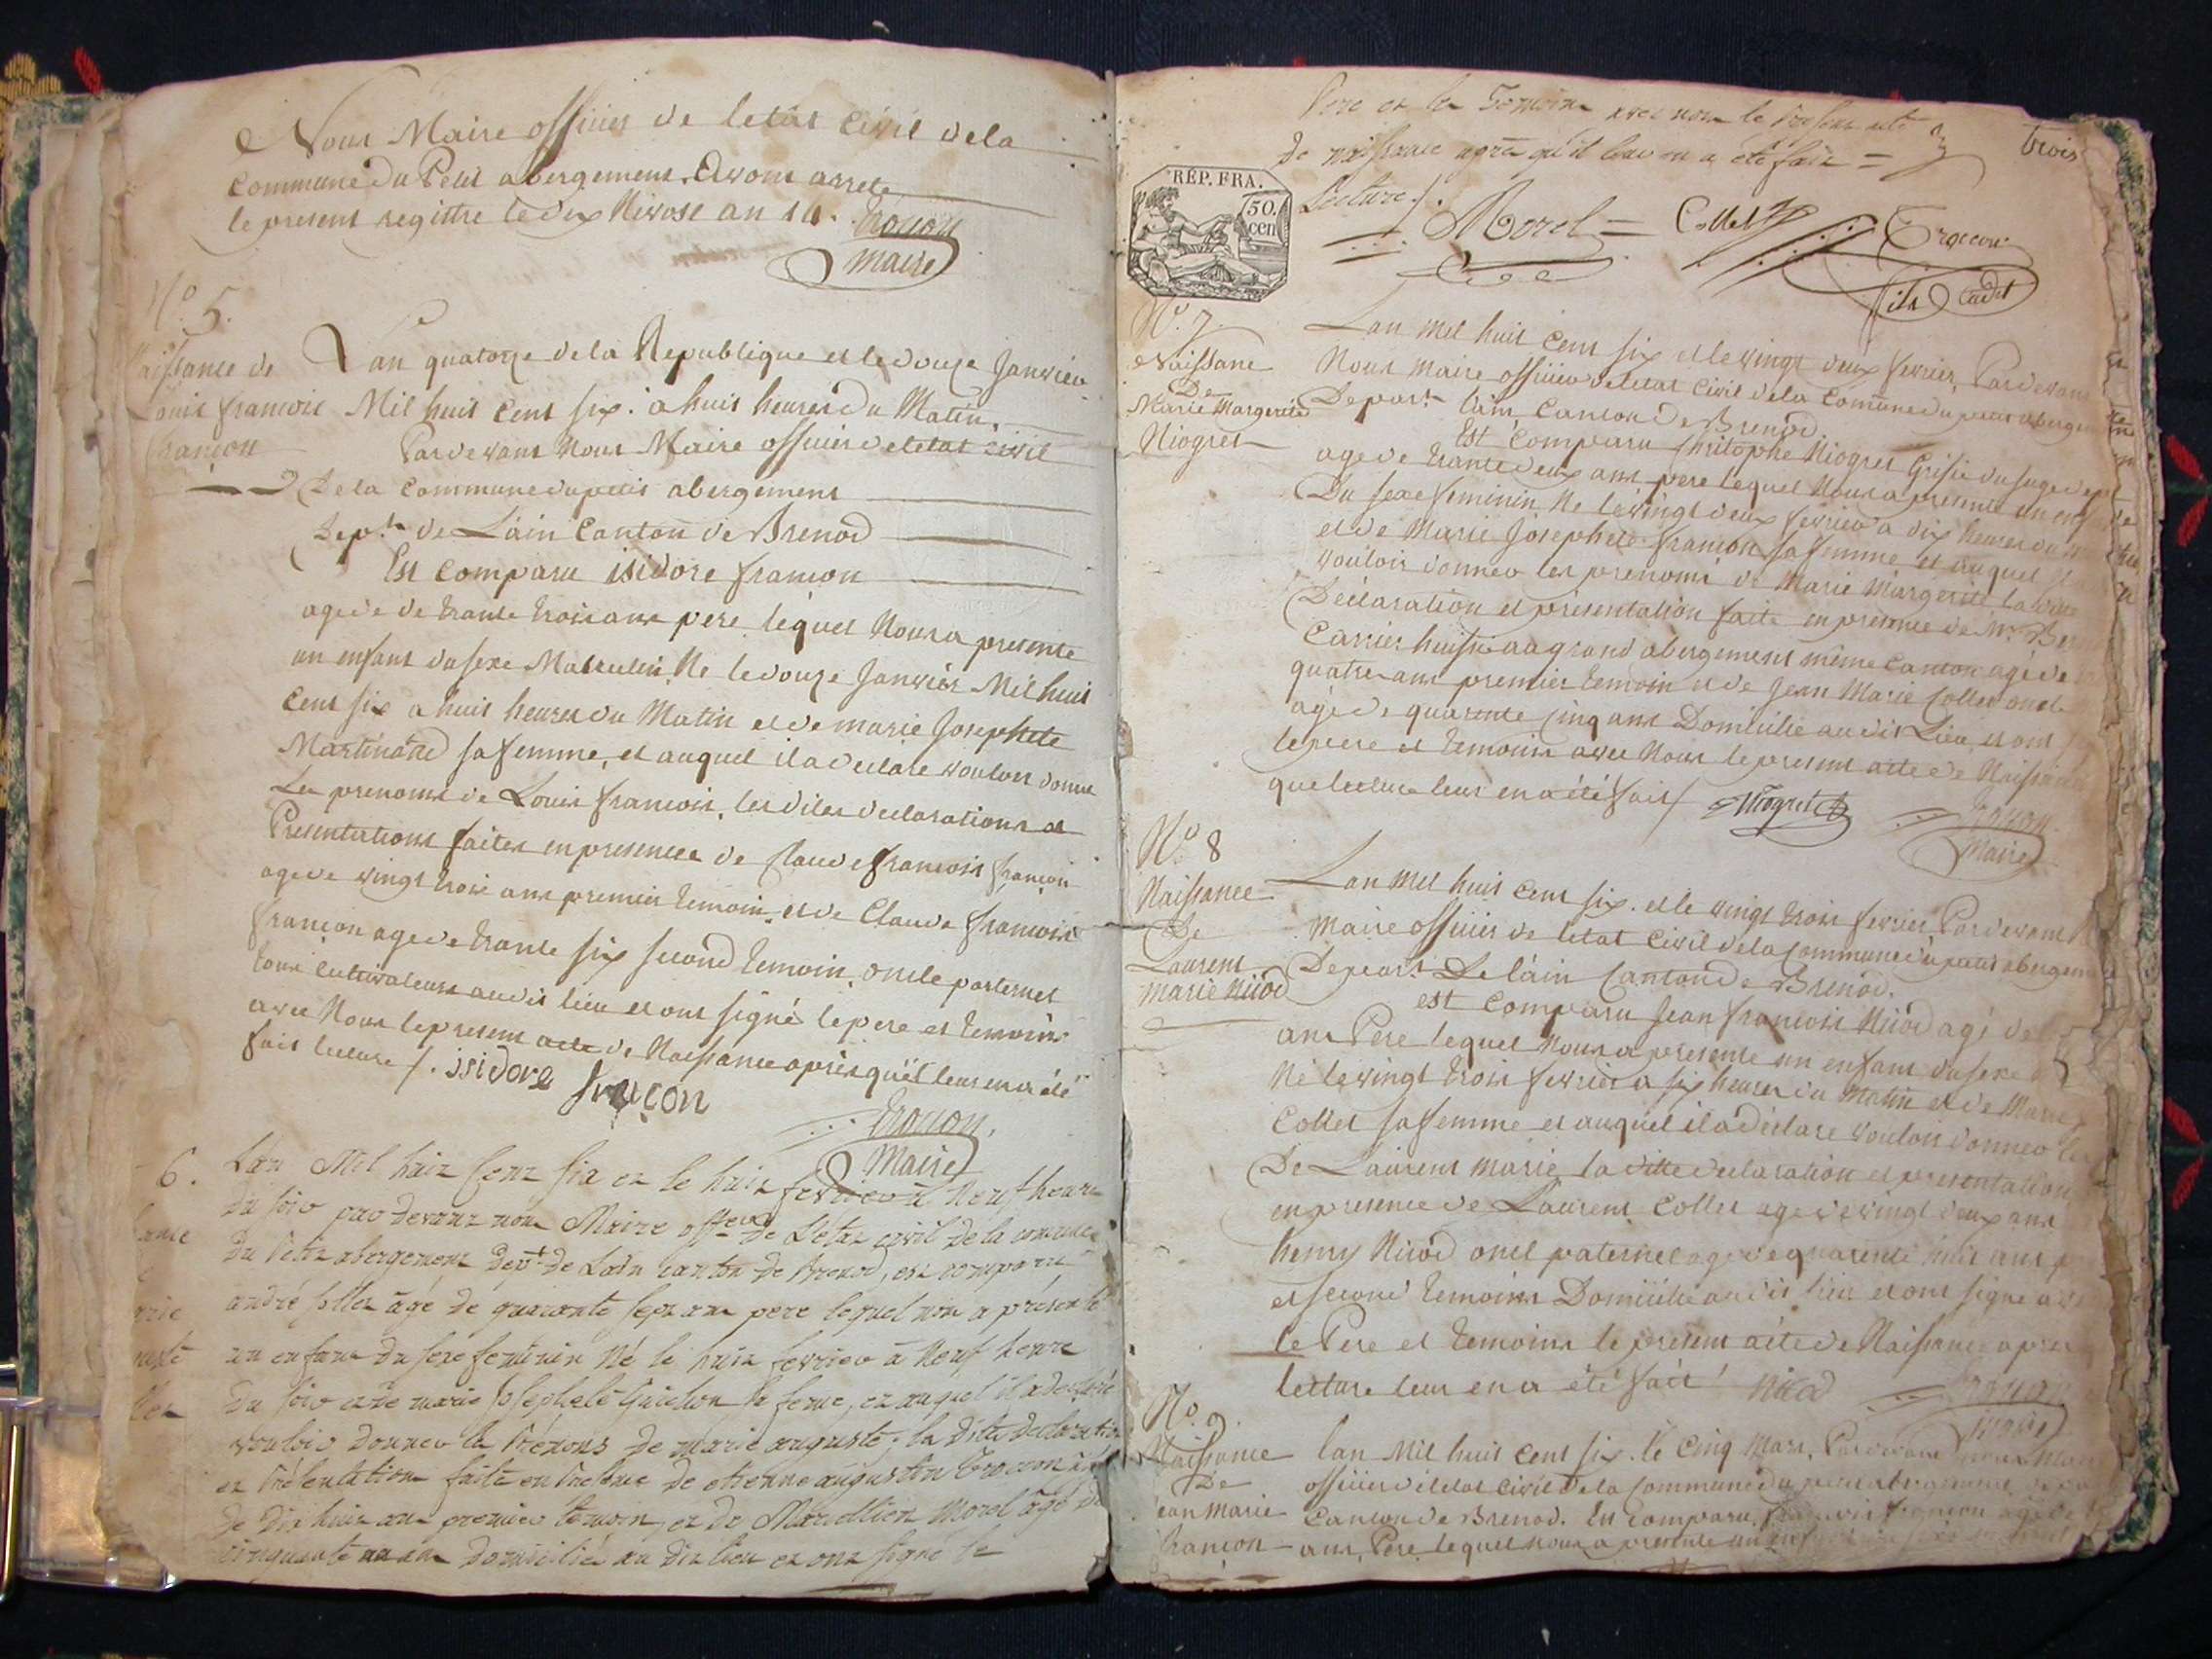 Nous Maire officier de letat Civil dela
Commune du Petit abergement. Avons arrete
le present registre le dix Nivose an 14. Trocon
Maire
N.o 5.
Naissance de
Louis francois
françon
Lan quatorze dela Republique et le douze Janvier
Mil huit Cent six. a huit heures du Matin.
Pardevant Nous Maire officier deletat civil
De la Commune du petit abergement
Dept. de Lain Canton de Brenod
Est Comparu isidore françon
age de de trante trois ans pere lequel Nous a presente
un enfant du sexe Masculin Ne le douze Janvier Mil huit
Cent six a huit heures du Matin et de marie Josephete
Martinand sa femme, et auquel il a declare vouloir donner
Les prenoms de Louis francois, les dites declarations et
Presentations faites en presence de Claude francois françon
age de vingt trois ans premier temoin, et de Claude francois
françon age de trante six second temoin, oncle paternel
tous cultivateurs audit lieu et ont signé le pere et temoins
avec Nous le present acte de Naissance après qu'il leur en a été
fait lecture /. issidore françon
Trocon,
Maire
6.
Lan Mil huit Cent six et le huit fevrier à Neuf heure
du soir par devant nous Maire offeur de Létat civil de la commune
du Petit abergement dept de Lain canton de Brenod, est comparu
andré Collet âgé de quarante sept ans pere lequel nous a présenté
un enfant du sexe feminin Né le huit fevrier à Neuf heure
du soir et de marie Josephete Guichon sa feme, et auquel il a declaré
vouloir donner les Prénoms de marie auguste; la dite declaration
et Présentation faite en Presence de etienne augustin Trocon âgé
de dix huit ans premier temoin, et de Marcellien Morel âgé de
cinquante un ans domicilié au dit lieu et ont signé le
Pere et les Temoins avec nous le Present acte
de naissance après qu'il leur en a été fait =
Lecture /.
trois
RÉP. FRA.
50.
cen
Morel = Collet Trocon
fils Cadet
N.o 7.
Naissance
De
Marie Margerite
Niogret
Lan Mil huit Cent six et le vingt deux fevrier, Pardevant
Nous Maire officier deletat Civil dela Commune du petit abergem
Depart. Lain Canton de Brenod.
Est Comparu Christophe Niogret
age de trante deux ans pere lequel Nous a presente un enf
Du sexe feminin Ne le vingt deux fevrier a dix heures du
et de Marie Josephete françon sa femme et auquel il
vouloir donner les prenoms de Marie Margerite la dite
Déclaration et présentation faite en presence de Mr. Be
Carrier huissier au grand abergement même Canton agé de
quatre ans premier temoin et de Jean Marie Collet oncle
âgé de quarente Cinq ans Domicilie audit Lieu, et ont
le pere et temoins avec Nous le present acte de Naissance
que lecture leur en a été fait / Niogret Trocon
Maire
N.o 8
Naissance
De
Laurent
Marie Nicod
Lan Mil huit Cent six. et le vingt trois fevrier, Pardevant
Maire officier de letat Civil dela Commune du petit abergem
Depart De lain Canton de Brenod.
est Comparu Jean francois Nicod agé de
ans Pere lequel Nous a presente un enfant du sexe
Né le vingt trois fevrier a six heures du Matin et de Marie
Collet sa femme et auquel il a déclare vouloir donner les
De Laurent Marie, la ditte declaration et presentation
en presence de Laurent Collet age de vingt deux ans
henry Nicod oncl paternel age de quarente huit ans
et second temoins Domicilie audit lieu et ont signe a
le Pere et temoins le present acte de Naissance apres
lecture leur en a été fait / Nicod Trocon
Maire
N.o 9.
Naissance
De
Jean Marie
françon
lan Mil huit Cent six. le Cinq Mars, Pardevant nous Maire
officier deletat Civil dela Commune du petit abergement
Canton de Brenod. Est Comparu, francois françon age de
ans, Pere lequel nous a presente un enf